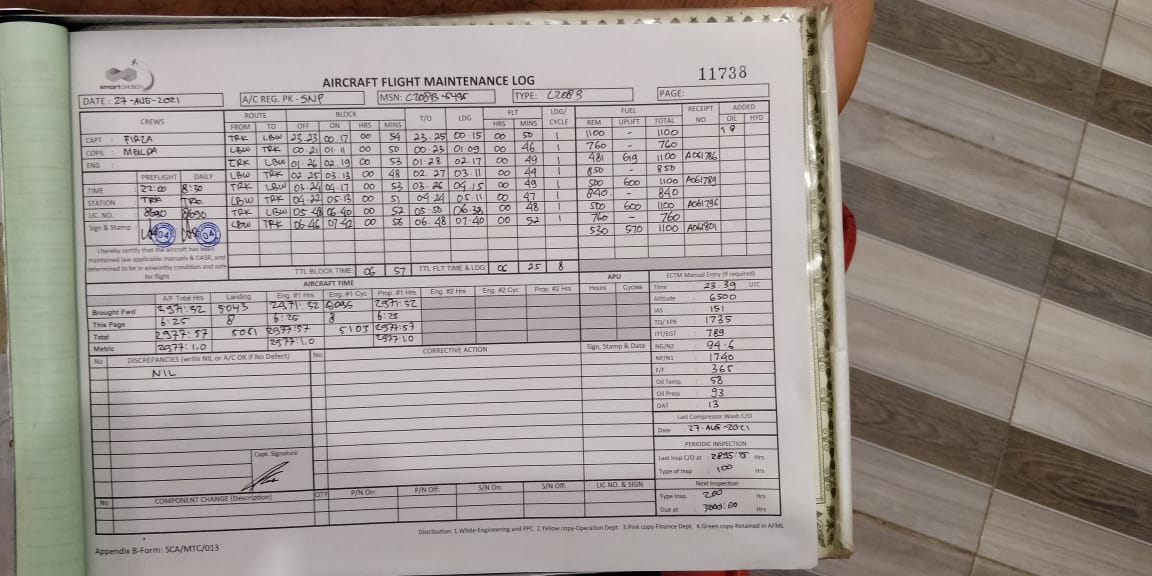 smartaviation
AIRCRAFT FLIGHT MAINTENANCE LOG
11738
DATE : 27-AUG-2021
A/C REG. PK - SNP
MSN: C208B-5495
TYPE: C208B
PAGE:
CREWS ROUTE BLOCK T/O LDG FLT LDG/CYCLE FUEL RECEIPT NO ADDED
FROM TO OFF ON HRS MINS HRS MINS REM UPLIFT TOTAL OIL HYD
CAPT : FIRZA
COPIL : MELDA
ENG :
PREFLIGHT DAILY
TIME : 22:00 8:30
STATION : TRK TRK
LIC. NO. : 8690 8690
Sign & Stamp :
TRK LBW 23.23 00.17 00 54 23.25 00.15 00 50 1 1100 - 1100 1 8
LBW TRK 00.21 01.11 00 50 00.23 01.09 00 46 1 760 - 760
TRK LBW 01.26 02.19 00 53 01.28 02.17 00 49 1 481 619 1100 A061786
LBW TRK 02.25 03.13 00 48 02.27 03.11 00 44 1 850 - 850
TRK LBW 03.24 04.17 00 53 03.26 04.15 00 49 1 500 600 1100 A061789
LBW TRK 04.22 05.13 00 51 04.24 05.11 00 47 1 840 - 840
TRK LBW 05.48 06.40 00 52 05.50 06.38 00 48 1 500 600 1100 A061796
LBW TRK 06.46 07.42 00 56 06.48 07.40 00 52 1 760 - 760
530 570 1100 A061801
I hereby certify that the aircraft has been
maintained law applicable manuals & CASR, and
determined to be in airworthy condition and safe
for flight
TTL BLOCK TIME: 06 57 TTL FLT TIME & LDG: 06 25 8
AIRCRAFT TIME
APU
A/F Total Hrs Landing Eng. #1 Hrs Eng. #1 Cyc Prop. #1 Hrs Eng. #2 Hrs Eng. #2 Cyc Prop. #2 Hrs Hours Cycles
Brought Fwd 2971:32 5043 2971:32 5095 2971:32
This Page 6:25 8 6:25 8 6:25
Total 2977:57 5051 2977:57 5103 2977:57
Metric 2977:1.0 2977:1.0 2977:1.0
ECTM Manual Entry (If required)
Time : 23.39 UTC
Altitude : 6500
IAS : 151
TQ/ EPR : 1735
ITT/EGT : 789
NG/N2 : 94.6
NP/N1 : 1740
F/F : 365
Oil Temp. : 58
Oil Press : 93
OAT : 13
Last Compressor Wash C/O
Date : 27-AUG-2021
PERIODIC INSPECTION
Last Insp C/O at : Hrs
Type of Insp : 100 Hrs
Next Inspection
Type Insp. : 200 Hrs
Due at : 3000:00 Hrs
No DISCREPANCIES (write NIL or A/C OK if No Defect) No CORRECTIVE ACTION Sign, Stamp & Date
NIL
Capt. Signature
No COMPONENT CHANGE (Description) QTY P/N On: P/N Off: S/N On: S/N Off: LIC NO. & SIGN
Distribution: 1.White-Engineering and PPC 2.Yellow copy-Operation Dept. 3.Pink copy-Finance Dept. 4.Green copy-Retained in AFML
Appendix B-Form: SCA/MTC/013